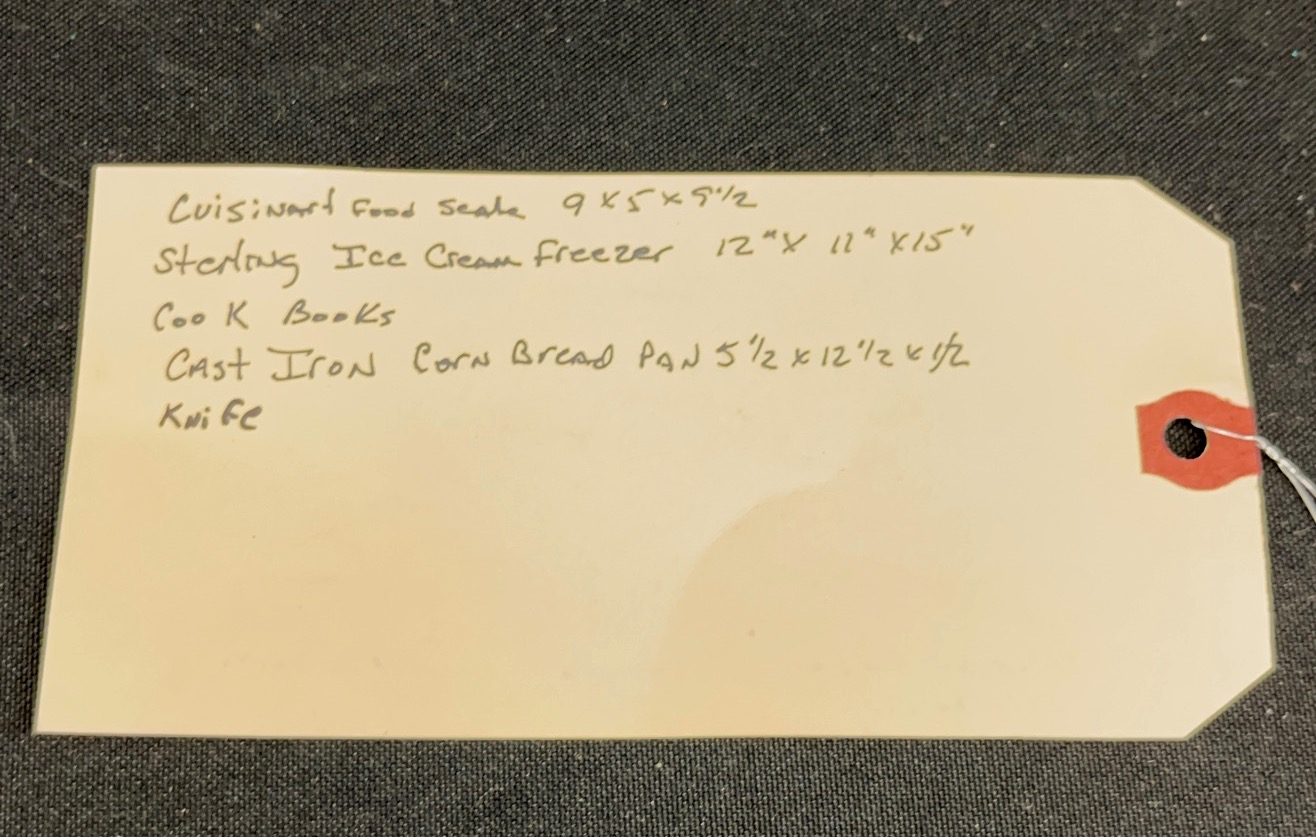 Cuisinart Food Scale 9 x 5 x 9 1/2
Sterling Ice Cream Freezer 12" x 11" x 15"
Cook Books
Cast Iron Corn Bread Pan 5 1/2 x 12 1/2 x 1/2
Knife